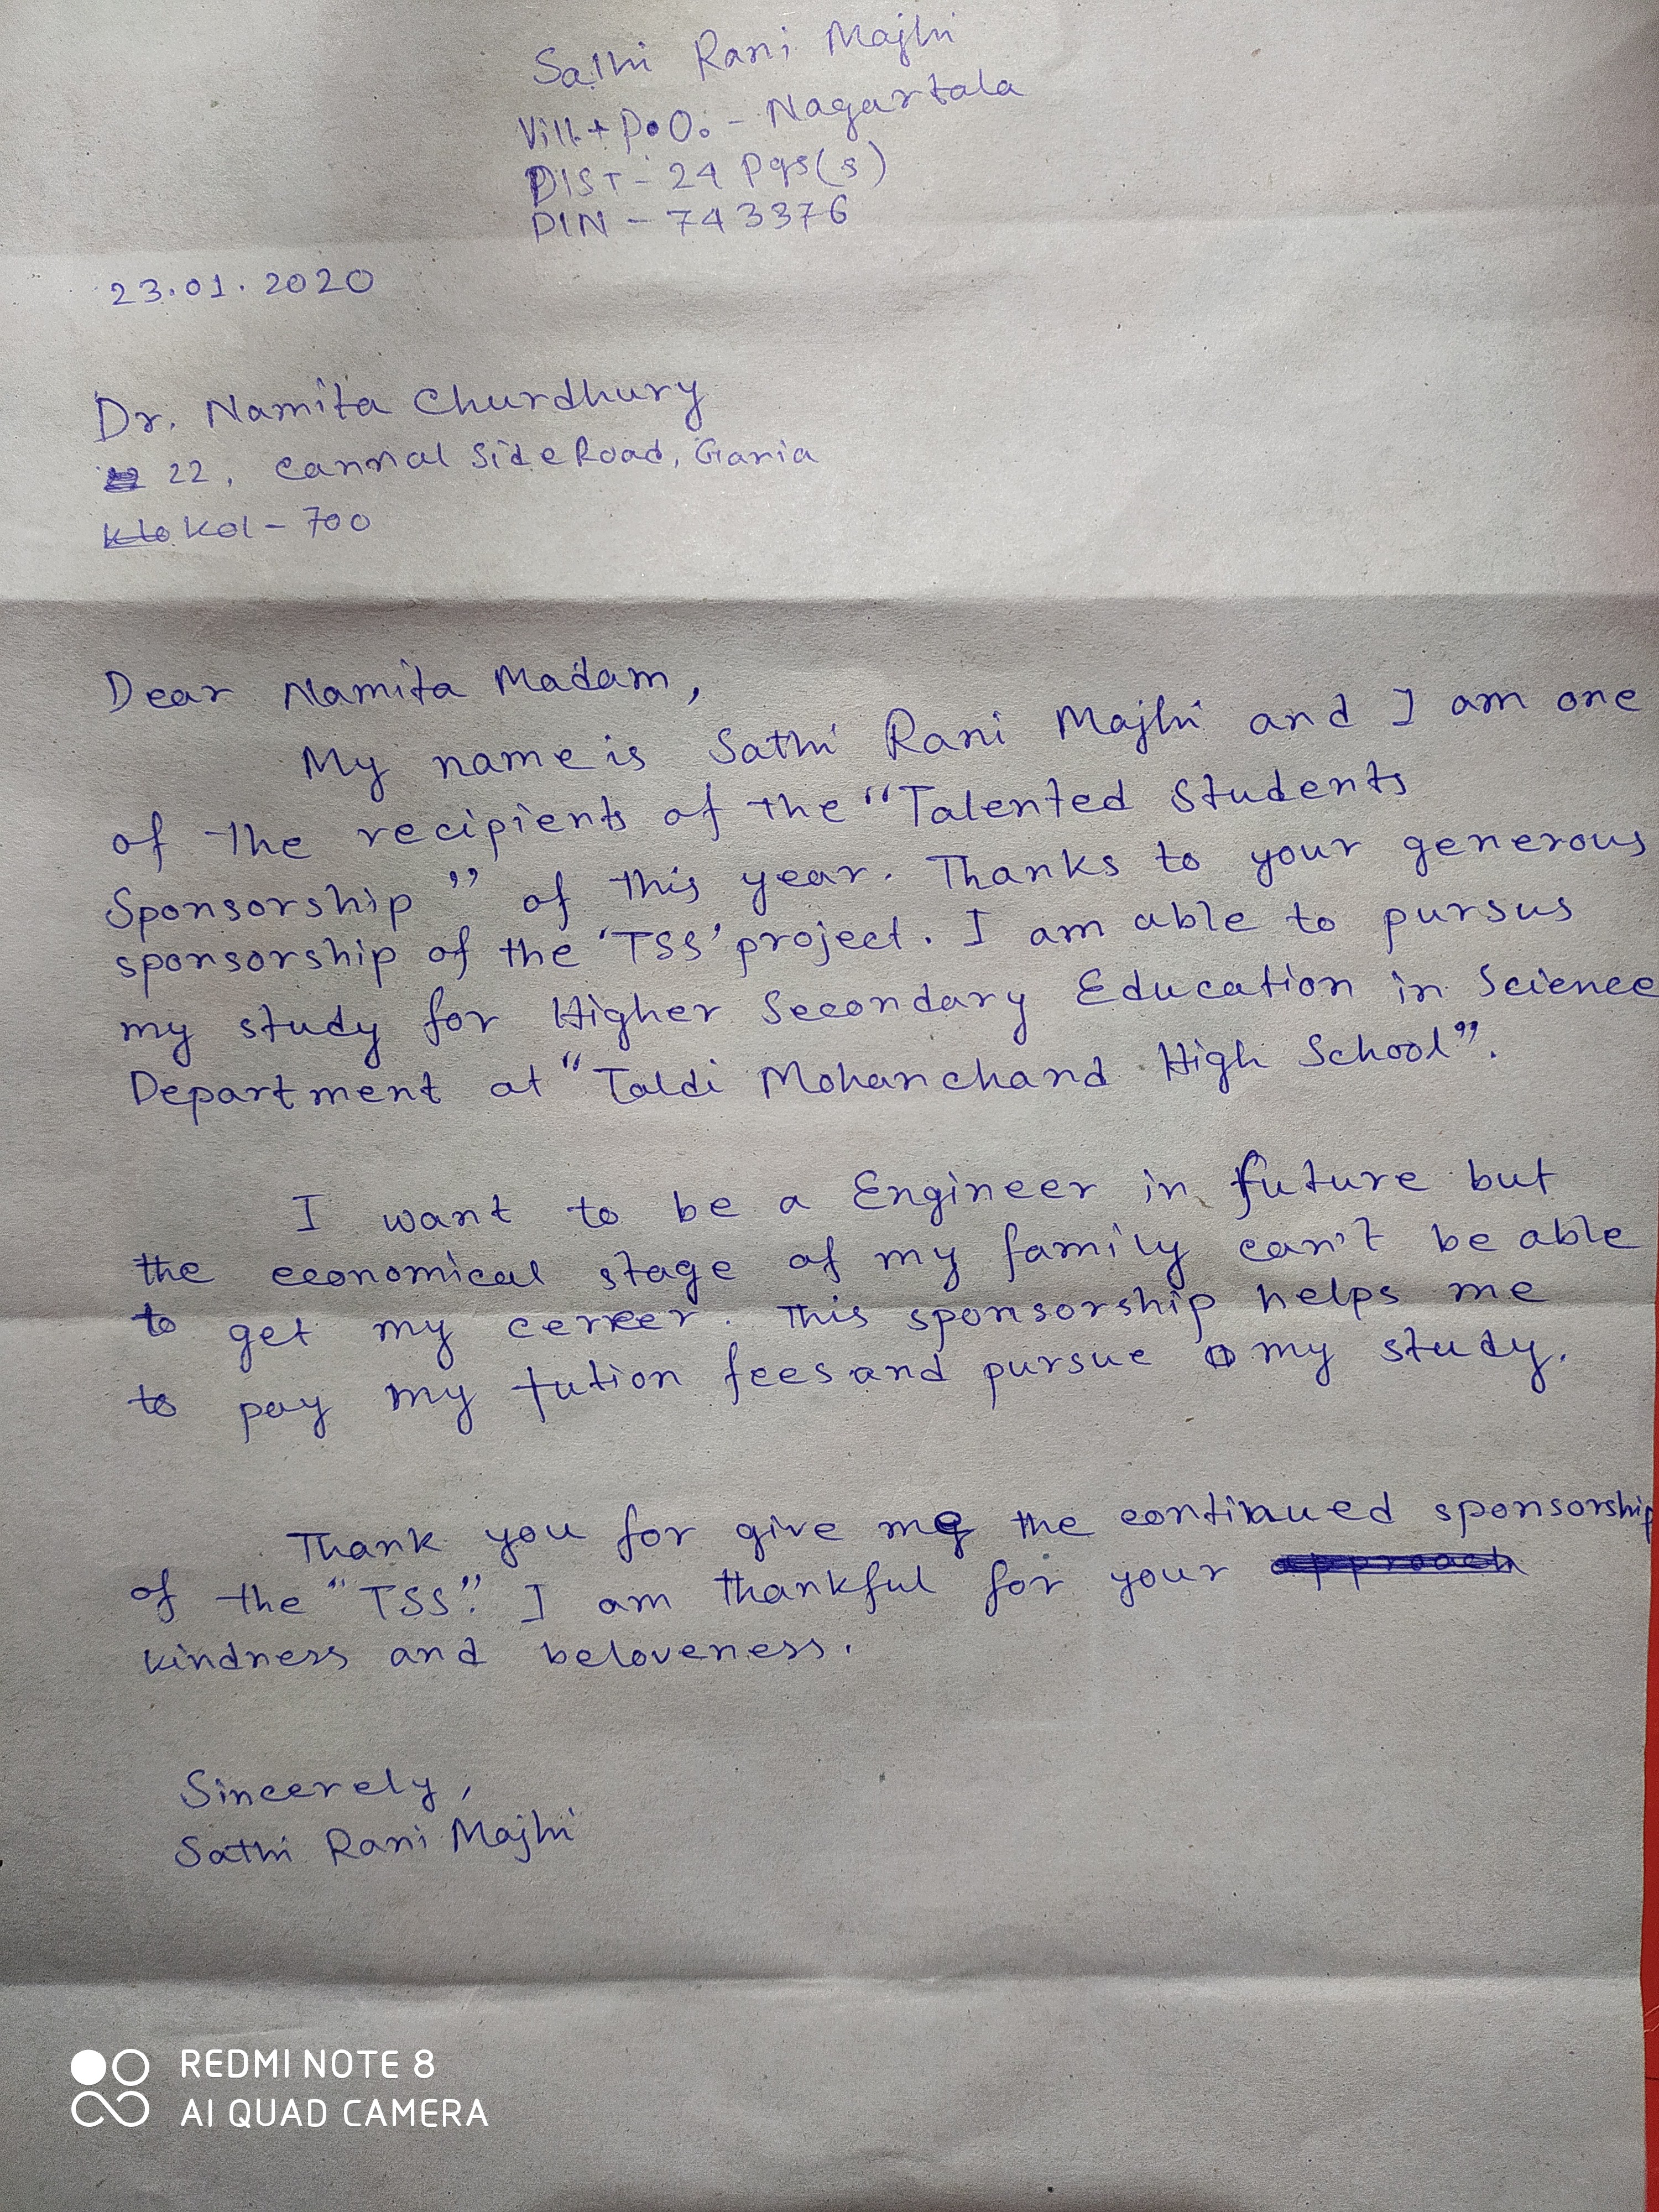 Sathi Rani Majhi
Vill+P.O. - Nagartala
DIST - 24 Pgs(s)
PIN - 743376
23.01.2020
Dr. Namita Churdhury
22, Cannal Side Road, Garia
Kol - 700
Dear Namita Madam,
My name is Sathi Rani Majhi and I am one
of the recipients of the "Talented Students
Sponsorship" of this year. Thanks to your generous
sponsorship of the 'TSS' project. I am able to pursus
my study for Higher Secondary Education in Science
Department at "Taldi Mohanchand High School".
I want to be a Engineer in future but
the economical stage of my family can't be able
to get my cerreer. This sponsorship helps me
to pay my tution fees and pursue my study.
Thank you for give me the continued sponsorship
of the "TSS". I am thankful for your approach
kindness and beloveness.
Sincerely,
Sathi Rani Majhi
REDMI NOTE 8
AI QUAD CAMERA